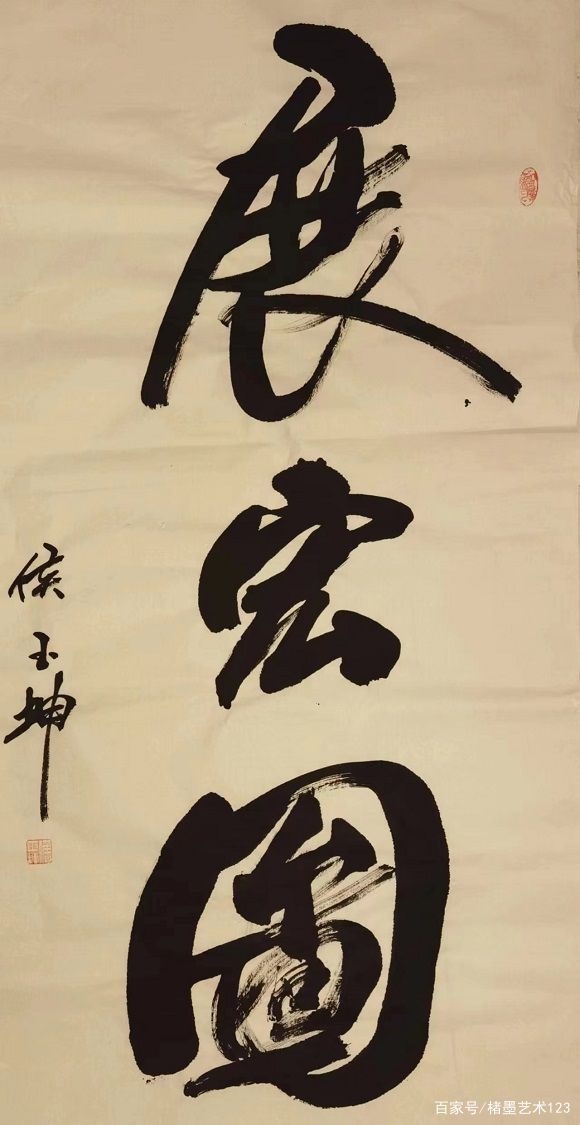 展宏圖
侯玉坤
百家号/楮墨艺术123